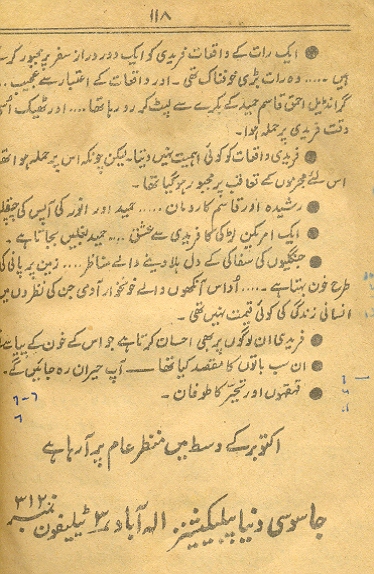 ۱۱۸
● ایک رات کے واقعات فریدی کو ایک دور دراز سفر پر مجبور کر
ہیں ..... وہ رات بڑی خوفناک تھی۔ اور واقعات کے اعتبار سے عجیب ..
گرانڈیل احمق قاسم حمید کے بکرے سے لپٹ کر رو رہا تھا .... اور ٹھیک اُس
وقت فریدی پر حملہ ہوا۔
● فریدی واقعات کو کوئی اہمیت نہیں دیتا۔ لیکن چونکہ اس پر حملہ ہوا تھا
اس لئے مجرموں کے تعاقب پر مجبور ہو گیا تھا۔
● رشیدہ اور قاسم کا رومان ..... حمید اور انور کی آپس کی
● ایک امریکن لڑکی کا فریدی سے عشق .... حمید بغلیں بجاتا ہے۔
● جنگلیوں کی سفاکی کے دل ہلا دینے والے مناظر .... زمین پر پانی کی
طرح خون بہتا ہے ..... اُداس آنکھوں والے خونخوار آدمی جن کی نظروں میں
انسانی زندگی کی کوئی قیمت نہیں تھی۔
● فریدی ان لوگوں پر بھی احسان کرتا ہے جو اس کے خون کے پیاسے
● ان سب باتوں کا مقصد کیا تھا —— آپ حیران رہ جائیں گے۔
● قہقہوں اور تحیّر کا طوفان۔
اکتوبر کے وسط میں منظر عام پر آ رہا ہے
جاسوسی دنیا پبلیکیشنز الہ آباد ۳ ٹیلیفون نمبر ۳۱۲